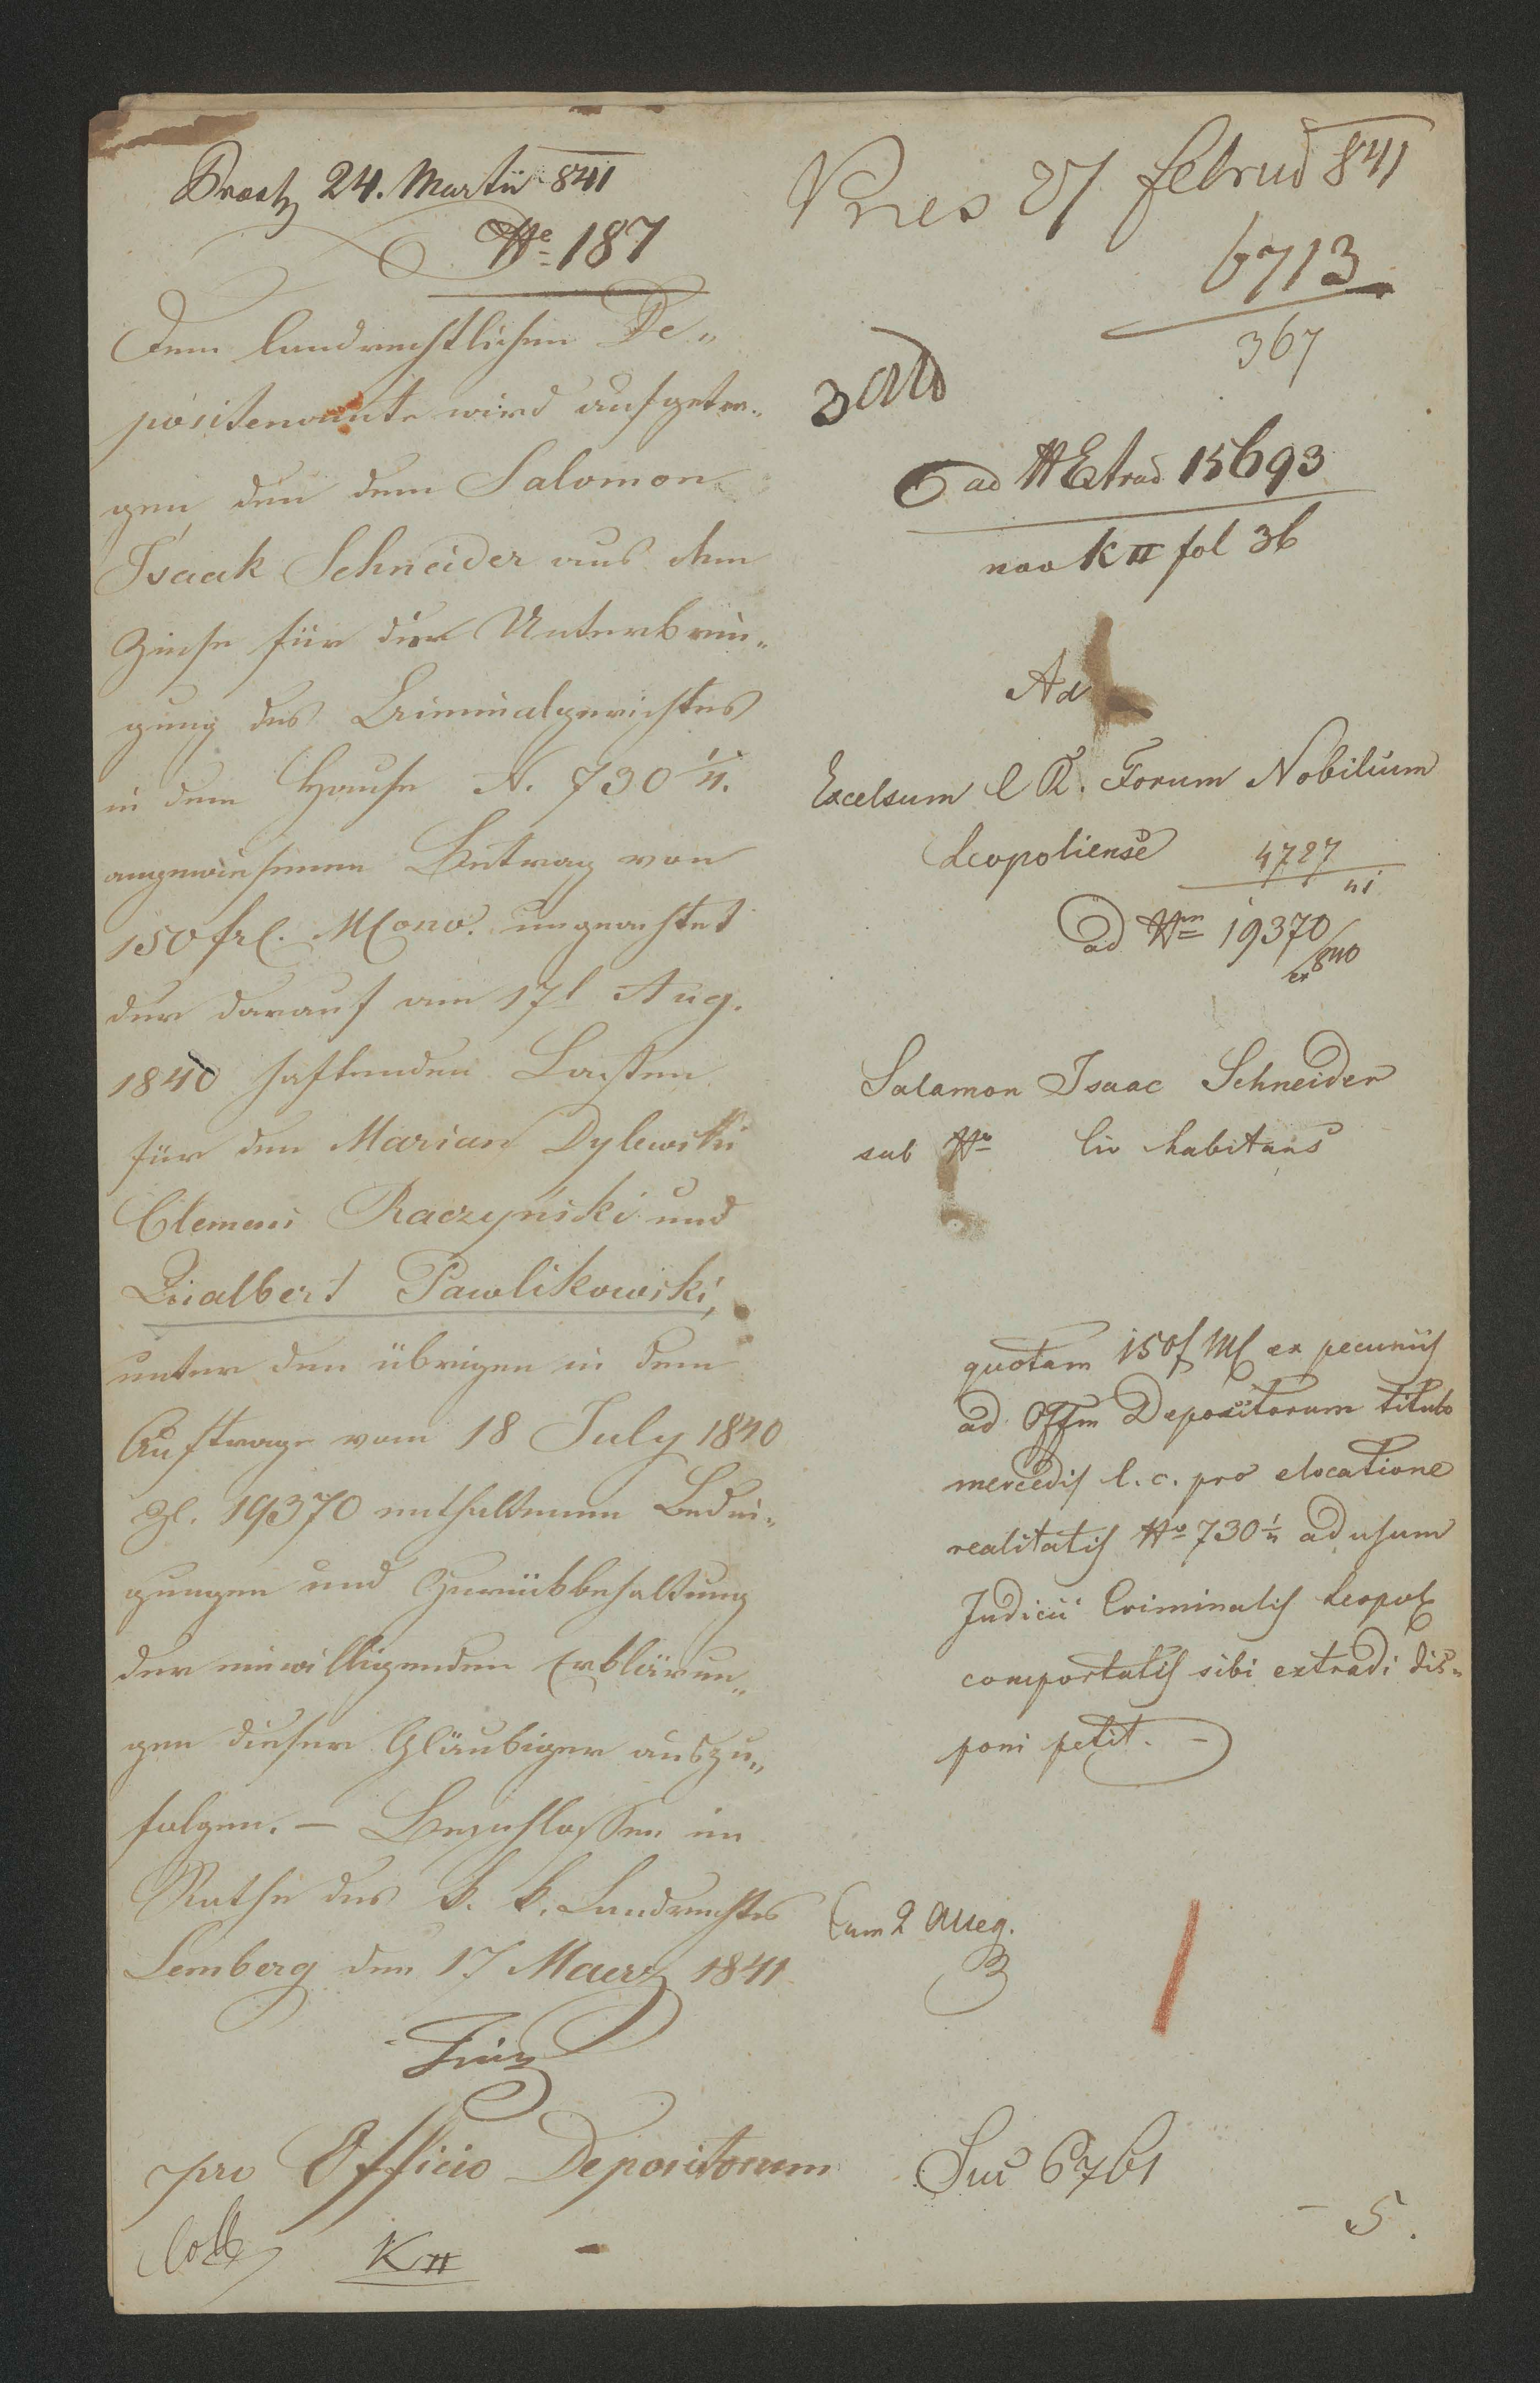 Praes 24. Martii 841
No 187
Dem landrechtlichen De„
positenamte wird aufgetra„
gen, den dem Salomon
Isaak Schneider aus dem
Zinse für die Unterbrin„
gung des Criminalgerichtes
in dem Hause N. 730 1/4.
angewiesenen Betrag von
150 frl. Mono. ungeachtet
der darauf am 17t Aug.
1840 haftenden Lasten
für den Marian Dylewski
Clemens Raczyński und
Adalbert Pawlikowski,
unter den übrigen in dem
Auftrage vom 18 July 1840
Zl. 19370 enthaltenen Bedin„
gungen und Zurückbehaltung
der einwilligenden Erklärun„
gen dieser Gläubiger auszu„
folgen. – Beschlossen im
Rathe des k. k. Landrechtes
Lemberg den 17 Maerz 1841
pro Officio Depositorum
Coll K II
Pres 27 februa 841
6713
367
ad No Extrad 15693
nov K II fol 36
Ad
Excelsum C R. Forum Nobilium
Leopoliense
4727
41
ad Nrm 19370
ex 840
Salamon Isaac Schneider
sub No Civ habitans
quotam 150f MC ex pecuniis
ad Offm Depositorum titulo
mercedis l. c. pro elocatione
realitatis No 730 1/4 ad usum
Judicii Criminalis Leopol
comportatis sibi extradi dis„
poni petit. –
Cum 2 Alleg.
3
Sus 6761
– 5.